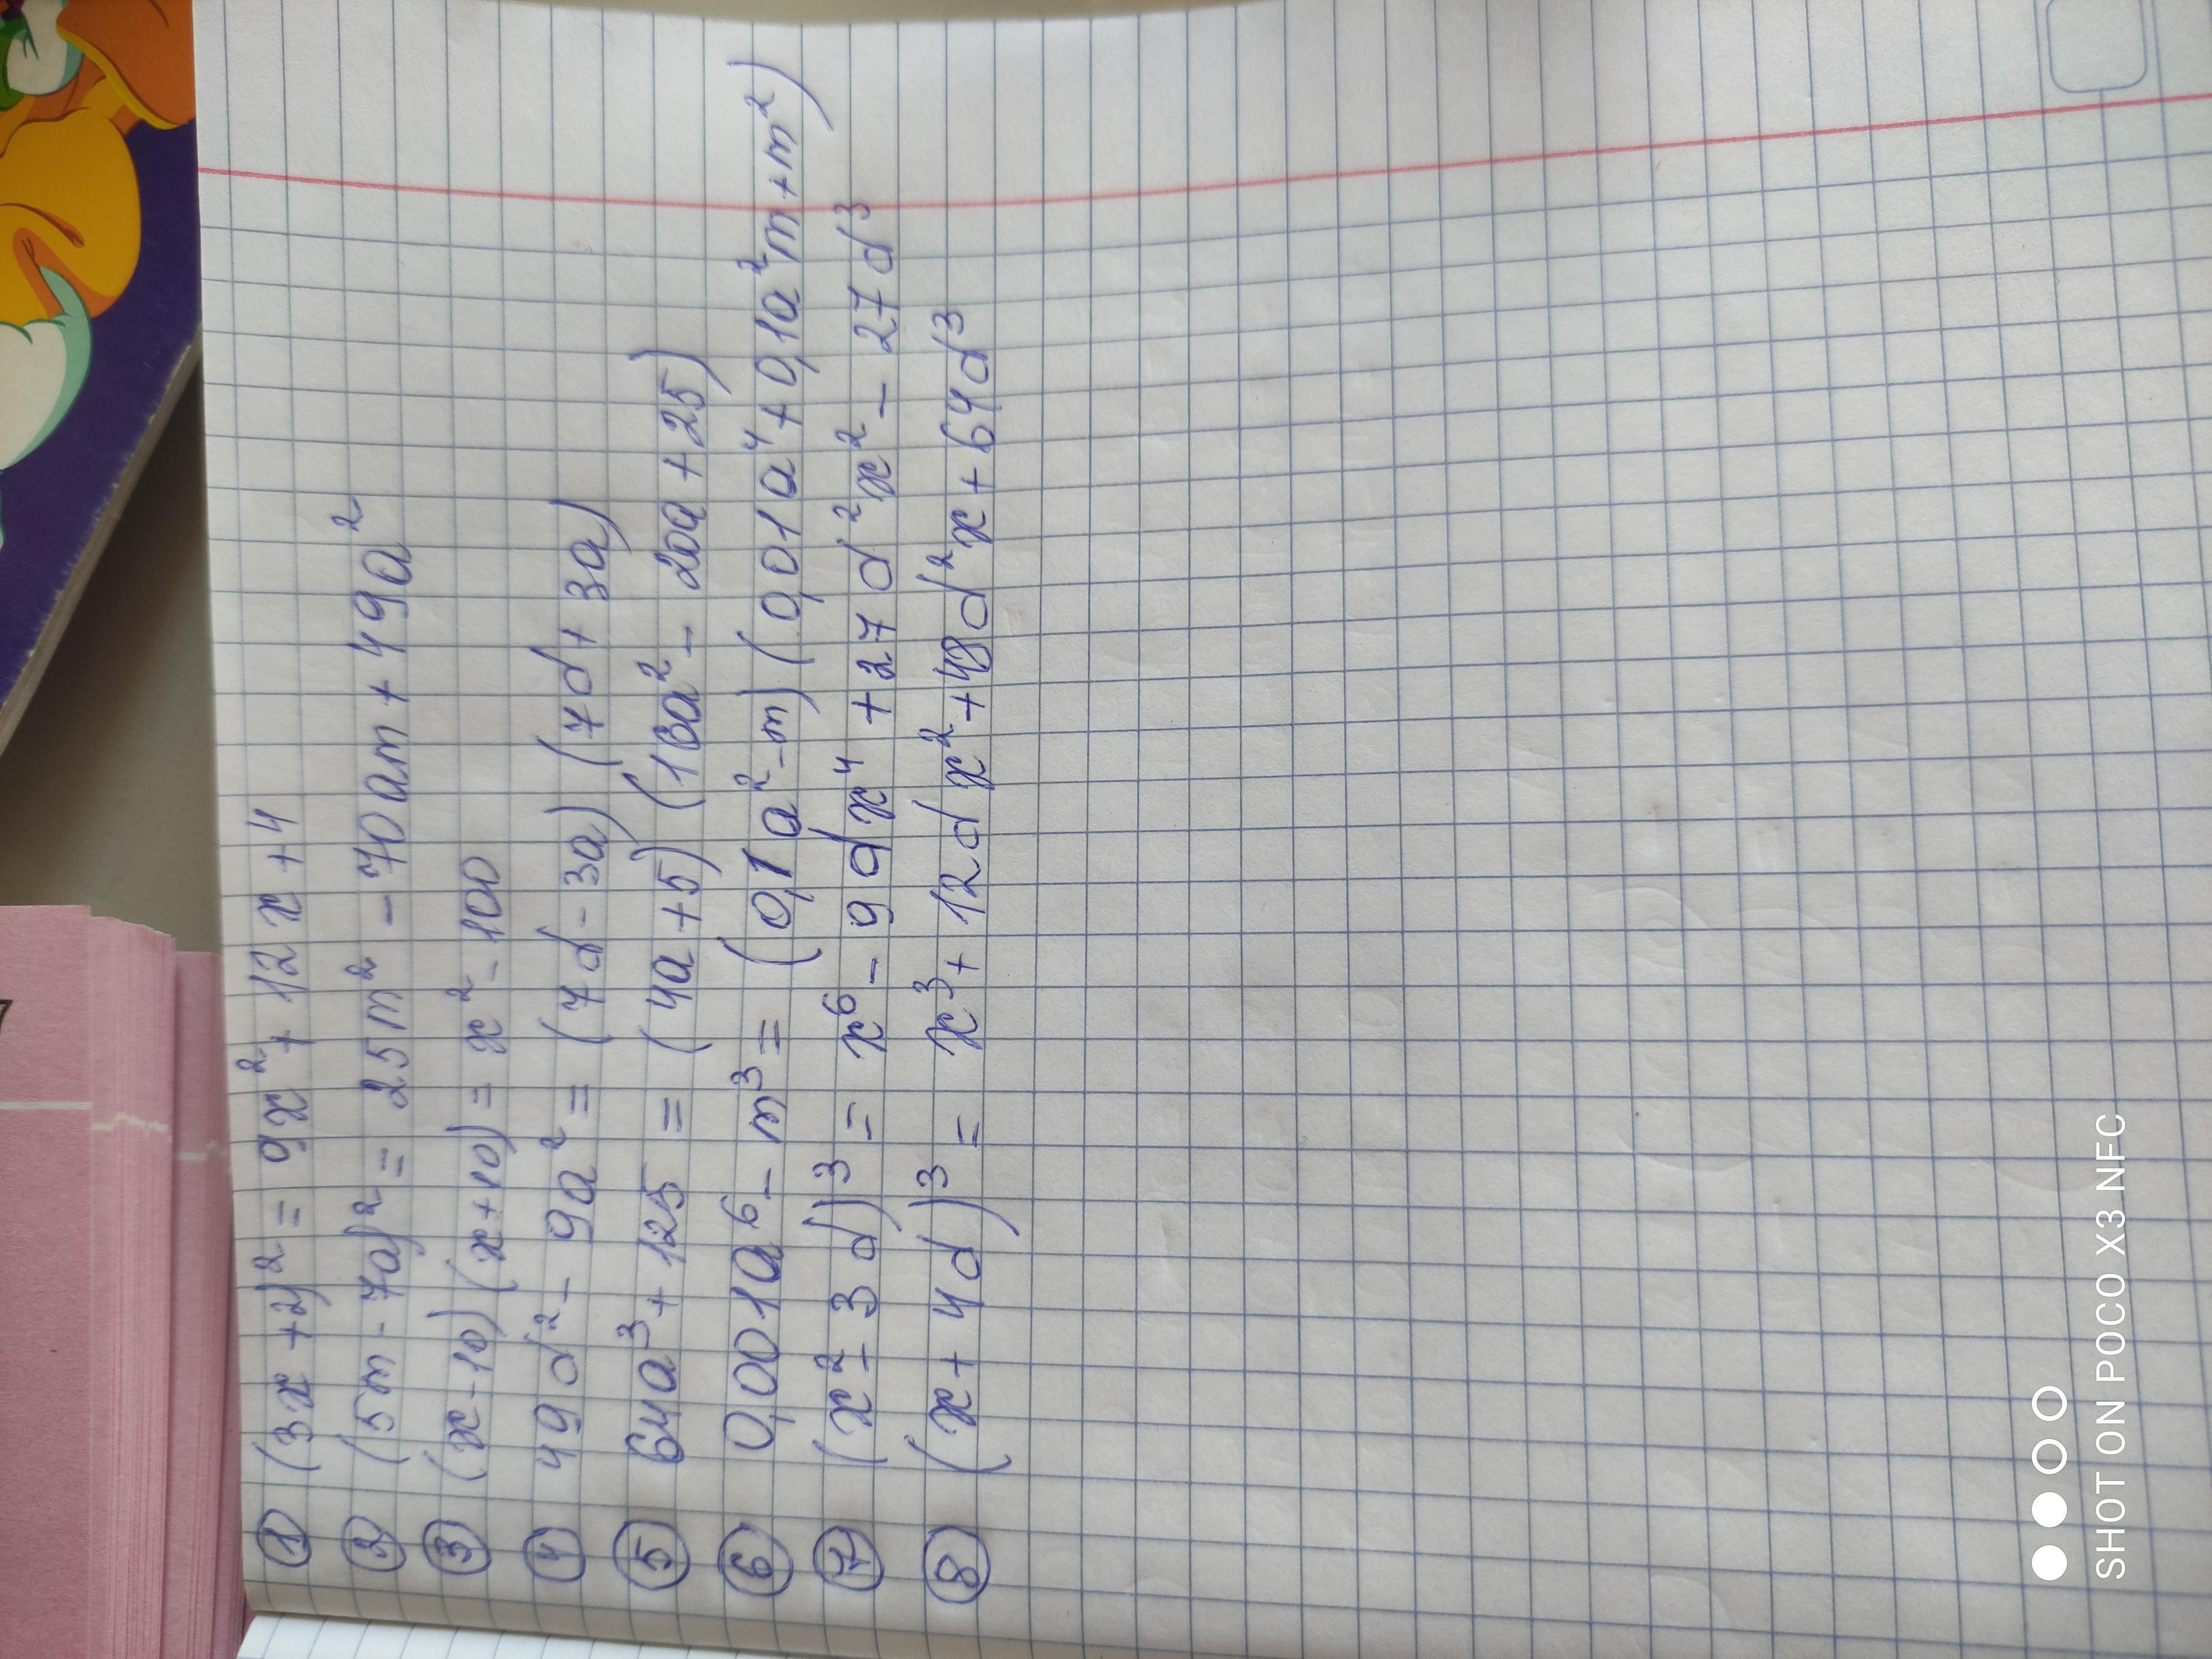 ① (3x+2)² = 9x² + 12x + 4
② (5m - 7a)² = 25m² - 70am + 49a²
③ (x-10)(x+10) = x² - 100
④ 49d² - 9a² = (7d - 3a)(7d + 3a)
⑤ 64a³ + 125 = (4a + 5)(16a² - 20a + 25)
⑥ 0,001a⁶ - m³ = (0,1a² - m)(0,01a⁴ + 0,1a²m + m²)
⑦ (x² - 3d)³ = x⁶ - 9dx⁴ + 27d²x² - 27d³
⑧ (x + 4d)³ = x³ + 12dx² + 48d²x + 64d³
SHOT ON POCO X3 NFC